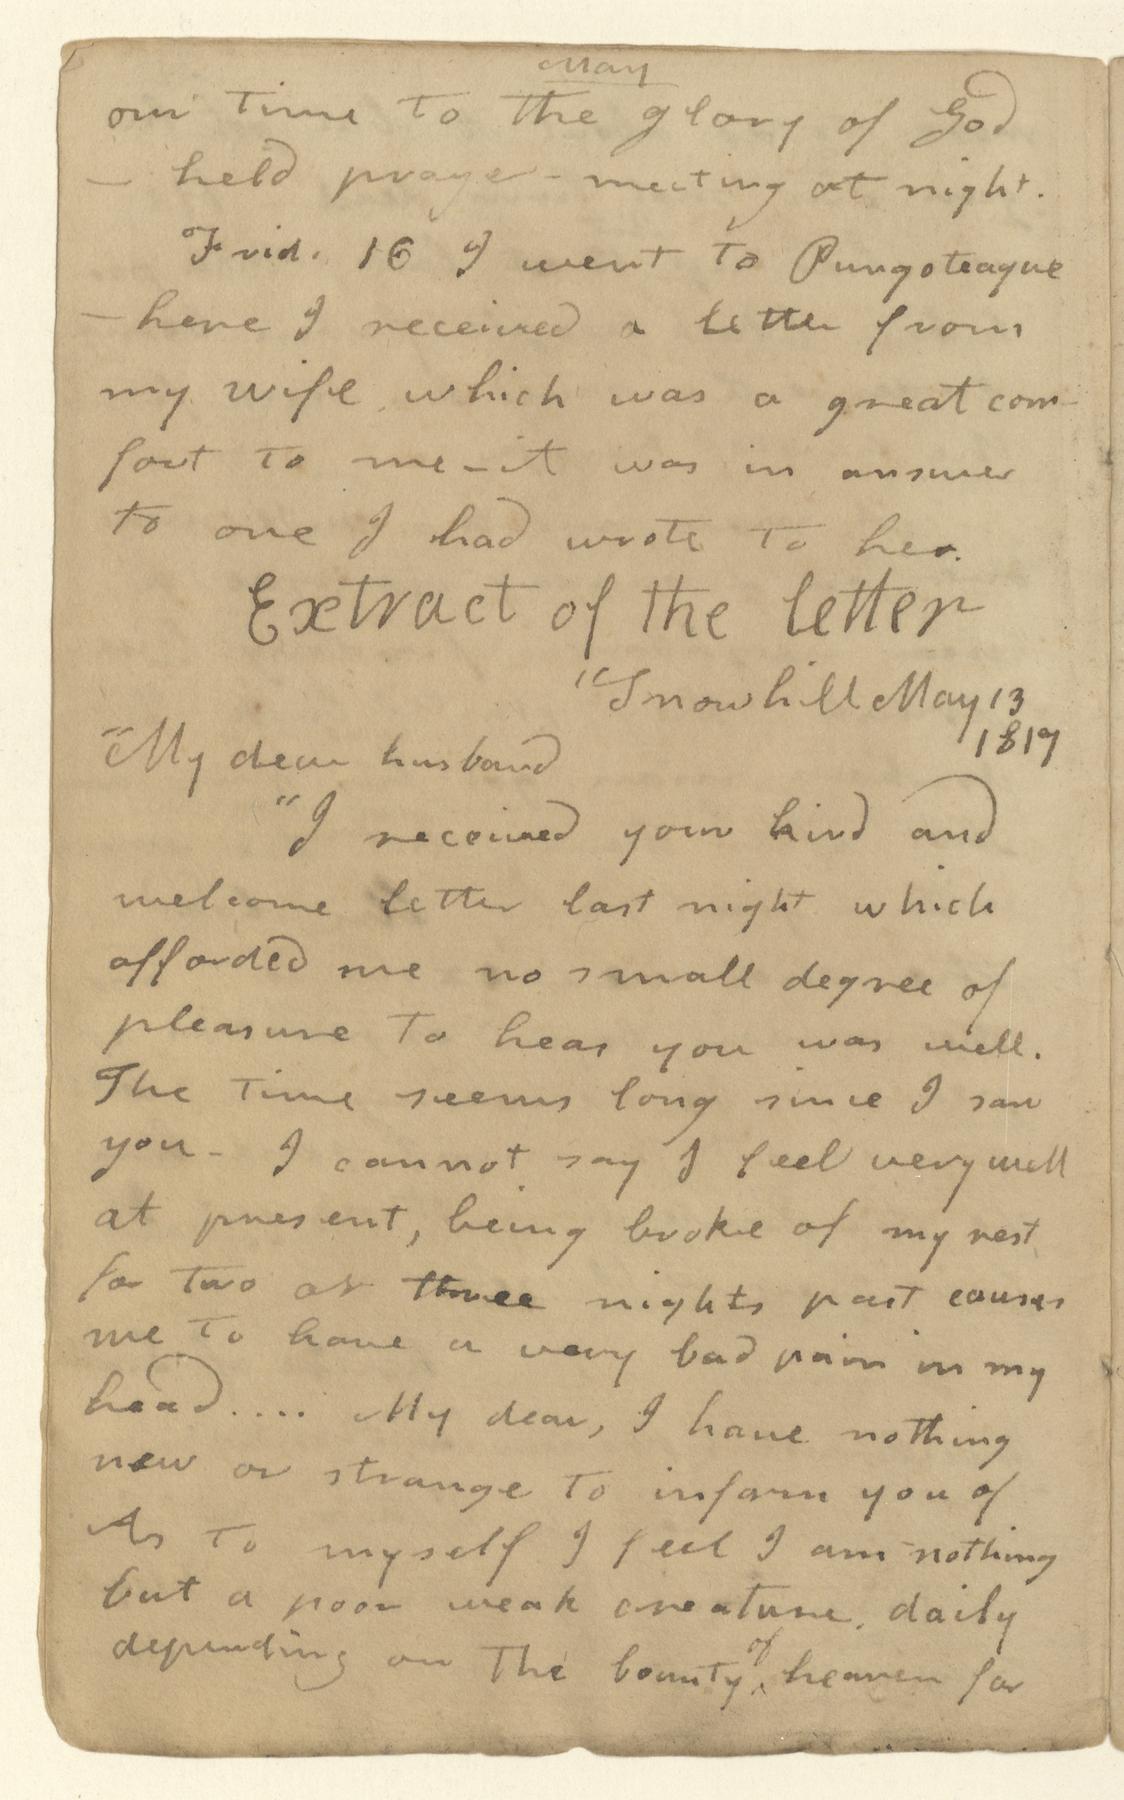 May
our time to the glory of God
— held prayer-meeting at night.
Frid. 16 I went to Pungoteague
— here I received a letter from
my wife which was a great com-
fort to me — it was in answer
to one I had wrote to her.
Extract of the letter
"Snowhill May 13
1817
"My dear husband
"I received your kind and
welcome letter last night which
afforded me no small degree of
pleasure to hear you was well.
The time seems long since I saw
you - I cannot say I feel very well
at present, being broke of my rest
for two or three nights past causes
me to have a very bad pain in my
head.... My dear, I have nothing
new or strange to inform you of
As to myself I feel I am nothing
but a poor weak creature, daily
depending on the bounty of heaven for